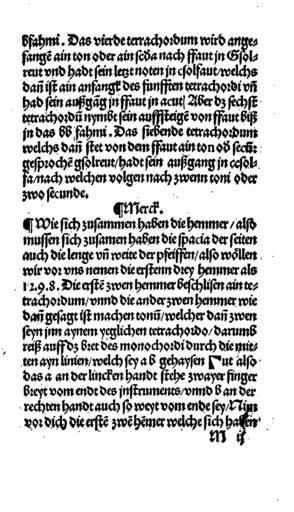 bfahmi. Das vierde tetrachordum wird ange-
fangē ain ton oder ain secūda nach ffaut in Gsol-
reut vnd hadt sein letzt noten in csolfaut/welchs
dañ ist ain anfangk des funfften tetrachordi vñ
had sein außgāg jn ffaut in acut/ Aber dz sechst
tetrachordū nymbt sein auffsteigē von ffaut biß
jn das bb fahmi. Das siebende tetrachordum
welchs dañ stet von dem ffaut ain ton od' secūn
gesprochē gsolreut/hadt sein außgang in ccsol-
fa/nach welchen volgen nach zwenn toni oder
zwo secunde.
¶Merck.
¶ Wie sich zusammen haben die hemmer/also
mussen sich zusamen haben die spacia der seiten
auch die lenge vñ weite der pfeiffen/also wöllen
wir vor vns nemen die erstenn drey hemmer als
12.9.8. Die erstē zwen hemmer beschlisen ain te-
trachordum/vnnd die ander zwen hemmer wie
dañ gesagt ist machen tonū/welcher dañ zwen
seyn jnn aynem yeglichen tetrachordo/darumb
reiß auff dz bret des monochordi durch die mit-
ten ayn linien/welch sey a b gehaysen Tut also
das a an der lincken handt stehe zwayer finger
breyt vom endt des instruments/vnnd b an der
rechten handt auch so weyt vom ende sey/Nim
vor dich die erstē zwē hēmer welche sich haben
M ij